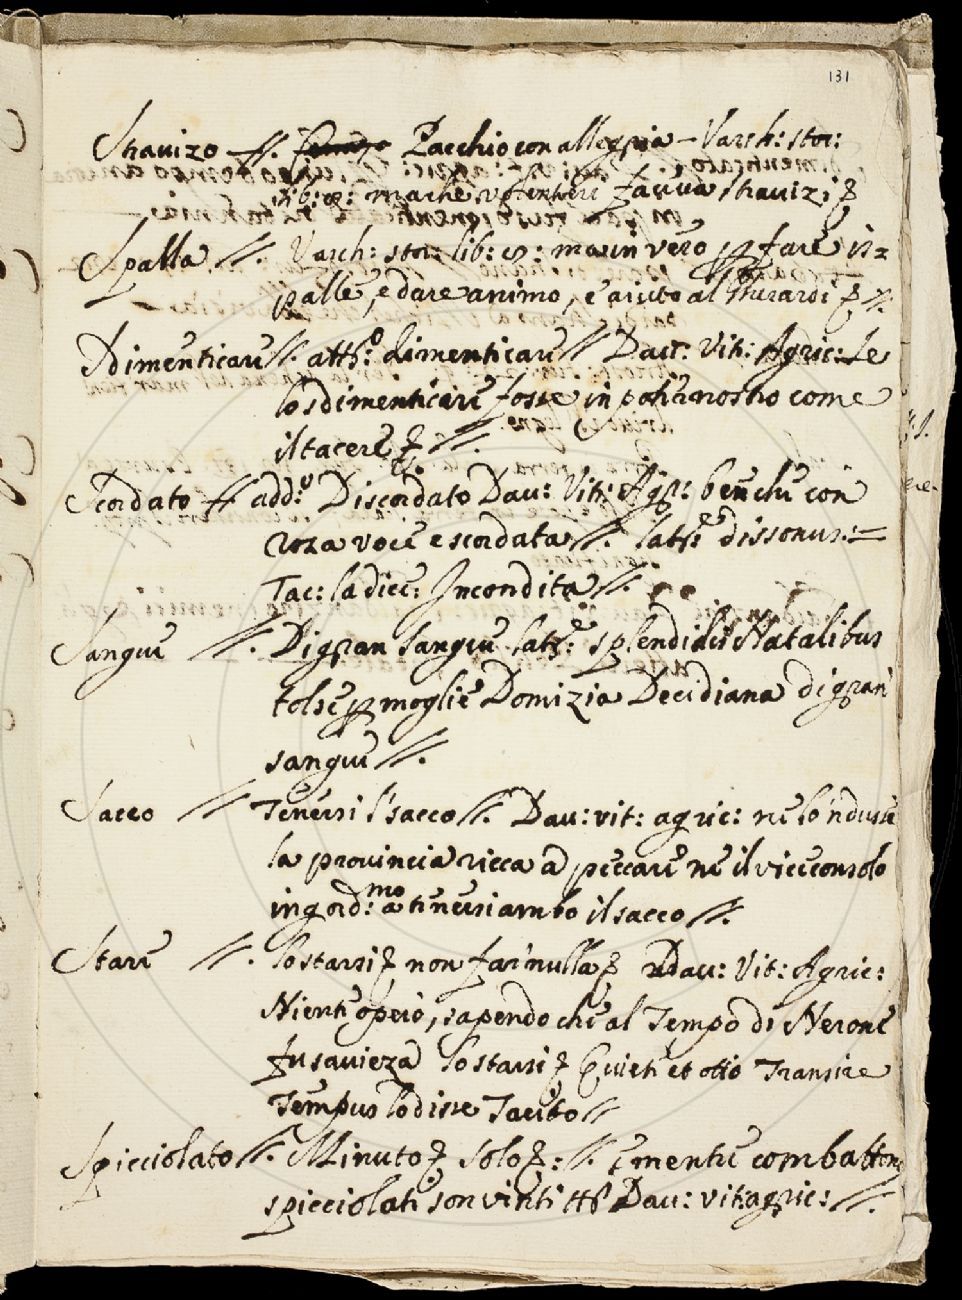 131
Stravizo //. Pacchio con allegria – Varch: stor:
lib: 9: mache si fentiri faceva stravizi
Spalla //. Varch: stor: lib: 9: ma in vero p fare is=
palle, e dare animo, e aiuto al Busardi //.
Dimenticare //. att.o dimenticare // Dav: Vit: Agric: Se
lo sdimenticare fosse in potere nostro come
il tacere //.
Scordato // add.o Discordato Dav: Vit: Agr: benche con
roza voce e scordata //. lat: dissonus. =
Tac: la dice: Incondita //.
Sangue //. Di gran sangue lat: splendidis Natalibus
tolse p moglie Domizia Decidiana di gran
sangue //.
Sacco // Tenersi l'sacco //. Dav: vit: agric: ne lo 'ndusse
la provincia ricca a peccare ne il viceconsolo
ingord.mo a tenersi ambo il sacco //.
Stare //. lo starsi non far nulla Dav: Vit: Agric:
Niente operò, sapendo che al Tempo di Nerone
fu savieza lo starsi Quiete et otio Transire
Tempus lo disse Tacito //
Spicciolato //. Minuto solo: //. e mentre combatton
spicciolati son vinti tt. Dav: vit: agric: //.